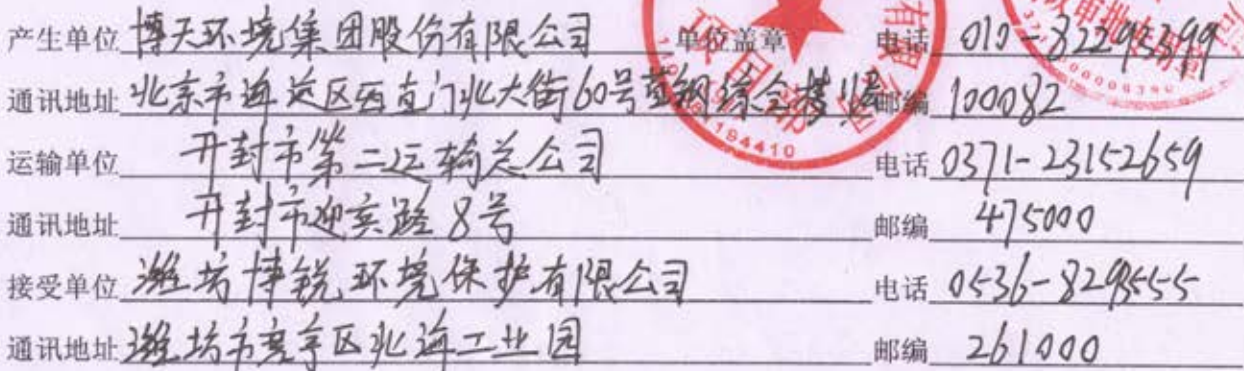 产生单位 博天环境集团股份有限公司 单位盖章 电话 010-82293399
通讯地址 北京市海淀区西直门北大街60号首钢综合楼11层 邮编 100082
运输单位 开封市第二运输总公司 电话 0371-23152659
通讯地址 开封市迎宾路8号 邮编 475000
接受单位 潍坊博锐环境保护有限公司 电话 0536-8295555
通讯地址 潍坊市寒亭区北海工业园 邮编 261000
有限公司
项目部
194410
审批专用章